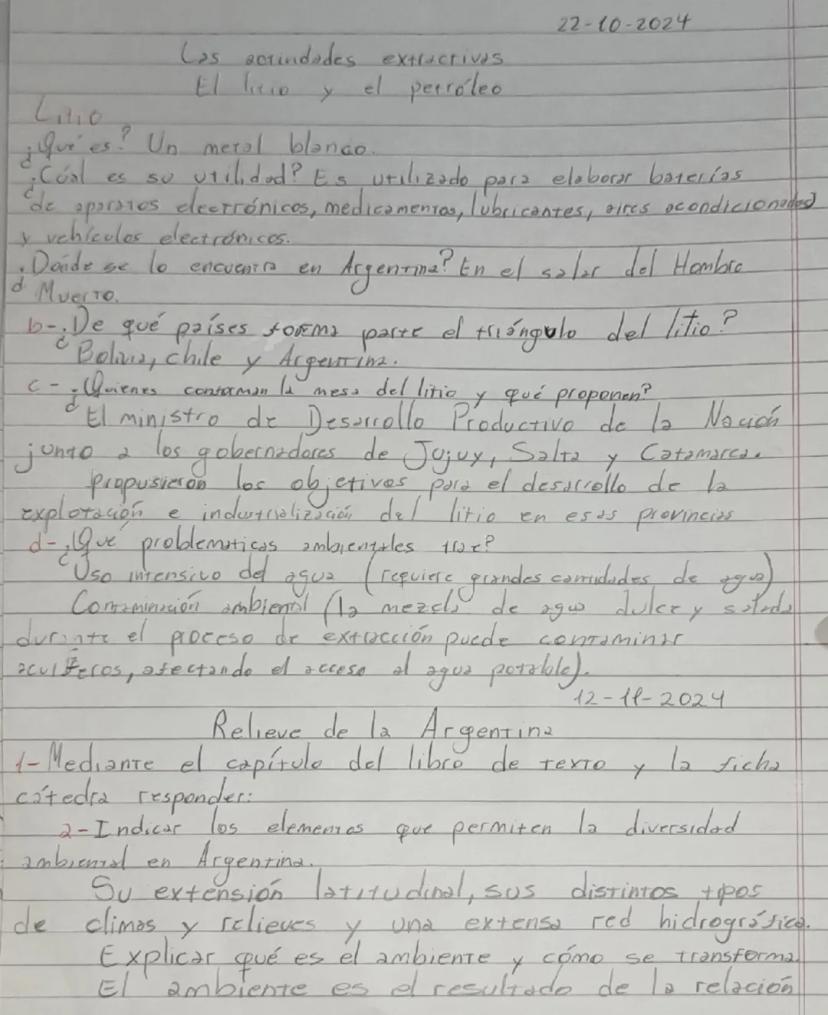 22-10-2024
Las actividades extractivas
El litio y el petróleo
Litio
¿Qué es? Un metal blanco.
¿Cúal es su utilidad? Es utilizado para elaborar baterías
de aparatos electrónicos, medicamentos, lubricantes, aires acondicionados
y vehículos electrónicos.
¿Donde se lo encuentra en Argentina? En el salar del Hombre
Muerto.
b-¿De qué países forma parte el triángulo del litio?
Bolivia, chile y Argentina.
c-¿Quienes conforman la mesa del litio y qué proponen?
El ministro de Desarrollo Productivo de la Nación
junto a los gobernadores de Jujuy, Salta y Catamarca.
propusieron los objetivos para el desarrollo de la
explotación e industrialización del litio en esas provincias
d-¿Qué problematicas ambientales trae?
Uso intensivo del agua (requiere grandes cantidades de agua)
Contaminación ambiental (la mezcla de agua dulce y salada
durante el proceso de extracción puede contaminar
acuíferos, afectando el acceso al agua potable).
12-11-2024
Relieve de la Argentina
1-Mediante el capítulo del libro de texto y la ficha
cátedra responder:
a-Indicar los elementos que permiten la diversidad
ambiental en Argentina.
Su extensión latitudinal, sus distintos tipos
de climas y relieves y una extensa red hidrográfica.
Explicar qué es el ambiente y cómo se transforma
El ambiente es el resultado de la relación